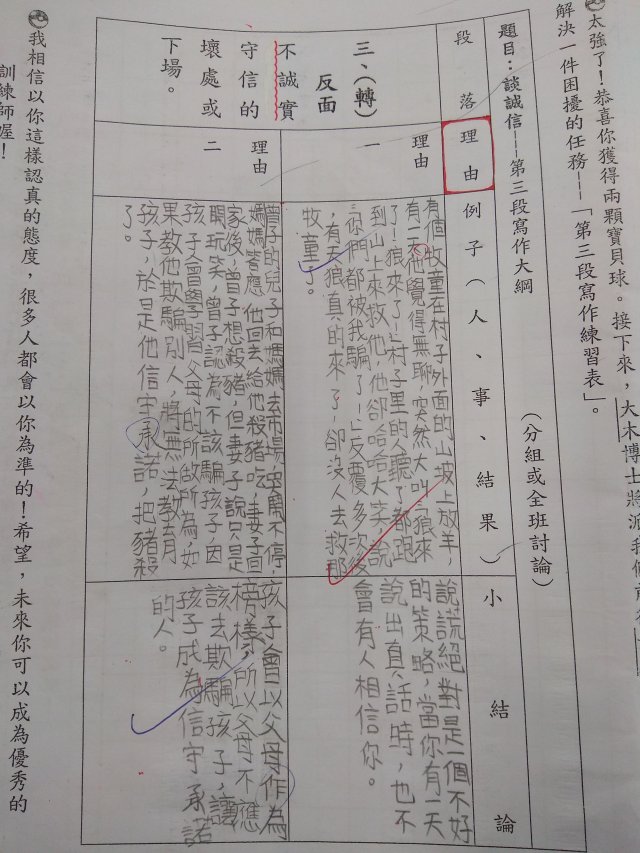 太強了！恭喜你獲得兩顆寶貝球。接下來，大木博士將派我們前
解決一件困擾的任務——「第三段寫作練習表」。
（分組或全班討論）
題目：談誠信——第三段寫作大綱
段落
理由
例子（人、事、結果）
小結論
三、（轉）
反面
不誠實
守信的
壞處或
下場。
理由
一
有個牧童在村子外面的山坡上放羊，
有一天他覺得無聊，突然大叫：「狼來
了！狼來了！」村子里的人聽了都跑
到山上來救他，他卻哈哈大笑說：
「你們都被我騙了！」反覆多次後
，有天狼真的來了，卻沒人去救那
牧童了。
說謊絕對是一個不好
的策略，當你有一天
說出真話時，也不
會有人相信你。
理由
二
曾子的兒子和媽媽去市場，哭鬧不停，
媽媽答應他回去給他殺豬吃，妻子回
家後，曾子想殺豬，但妻子說只是
開玩笑，曾子認為不該騙孩子，因
孩子會學習父母的所做所為，如
果教他欺騙別人，將無法教育
孩子，於是他信守承諾，把豬殺
了。
孩子會以父母作為
榜樣，所以父母不應
該去欺騙孩子，讓
孩子成為信守承諾
的人。
我相信以你這樣認真的態度，很多人都會以你為準的！希望，未來你可以成為優秀的
訓練師喔！